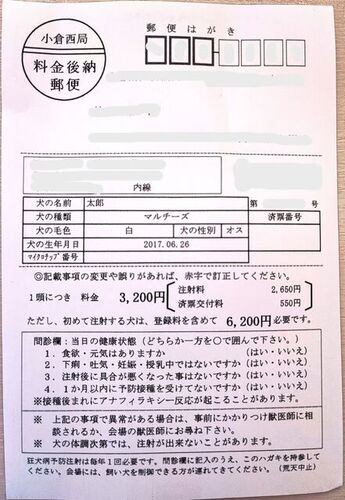 郵便はがき
小倉西局
料金後納
郵便
内線
犬の名前 太郎 第 号
犬の種類 マルチーズ 済票番号
犬の毛色 白 犬の性別 オス
犬の生年月日 2017.06.26
マイクロチップ番号
◎記載事項の変更や誤りがあれば、赤字で訂正してください。
1頭につき 料金 3,200円 注射料 2,650円
済票交付料 550円
ただし、初めて注射する犬は、登録料を含めて 6,200円必要です。
問診欄：当日の健康状態（どちらか一方を○で囲んで下さい。）
1．食欲・元気はありますか （はい・いいえ）
2．下痢・吐気・妊娠・授乳中ではないですか （はい・いいえ）
3．注射後に具合が悪くなった事はないですか （はい・いいえ）
4．1か月以内に予防接種を受けてないですか （はい・いいえ）
※接種後まれにアナフィラキシー反応が起こることがあります。
※ 上記の事項で異常がある場合は、事前にかかりつけ獣医師に相
談されるか、会場の獣医師にお尋ね下さい。
※ 犬の体調次第では、注射が出来ないことがあります。
狂犬病予防注射は毎年1回必要です。問診欄に記入のうえ、このハガキを持参して
ください。会場には、飼い犬を制御できる方が連れてきてください。 （荒天中止）